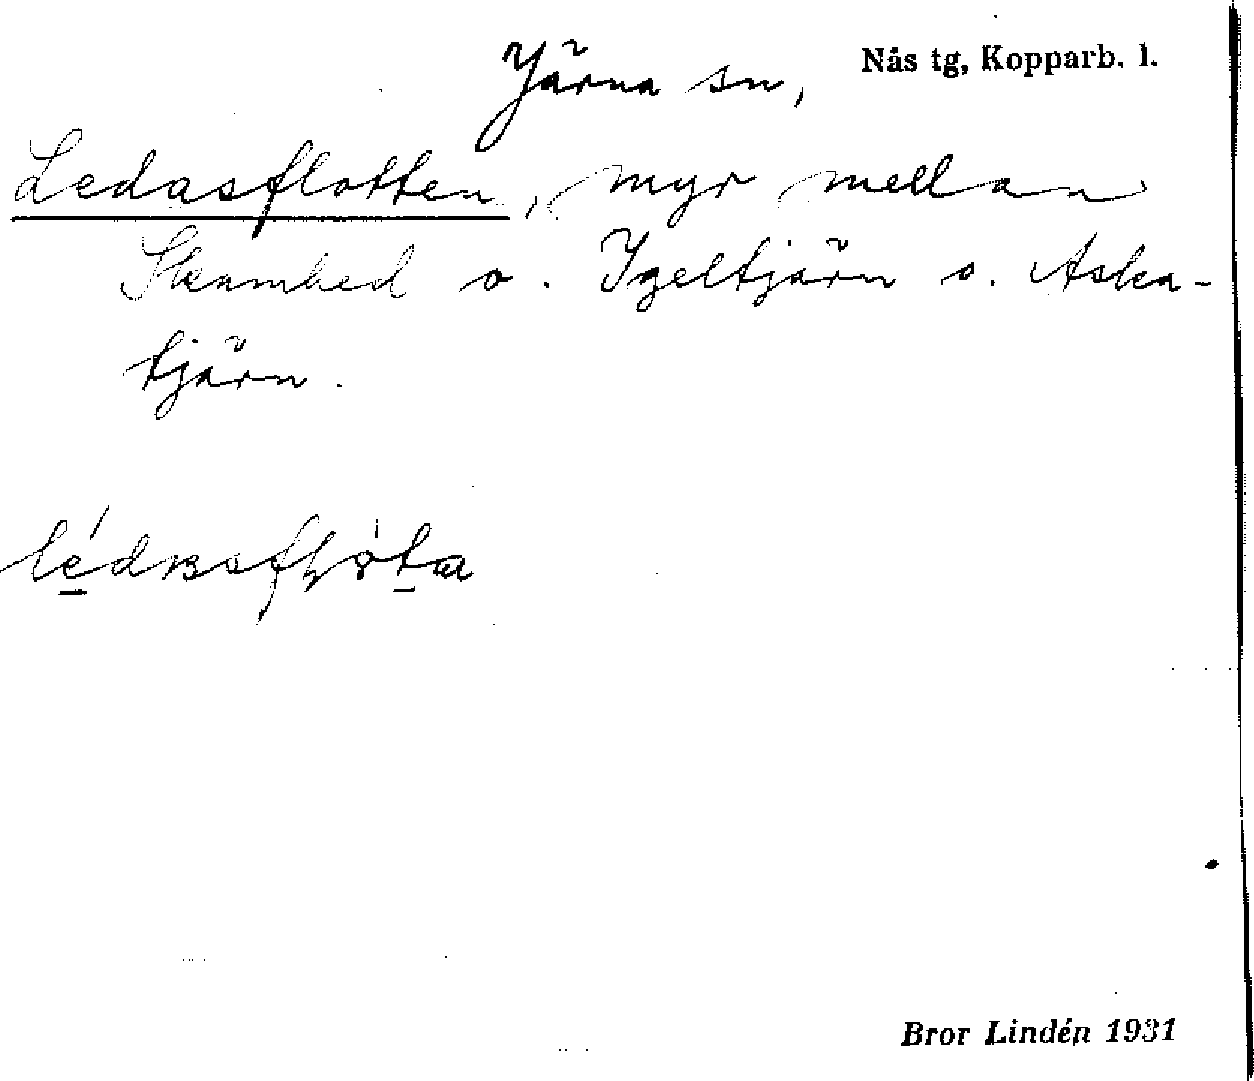 Järna sn, Nås tg, Kopparb. l.
Ledasflotten, myr mellan
Skambed o. Igeltjärn o. Aska-
tjärn.
Bror Lindén 1931